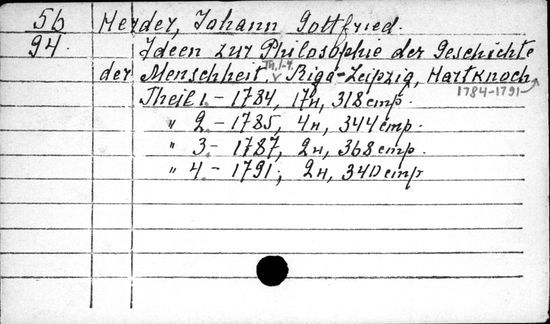 56 Herder, Johann Gottfried.
94. Ideen zur Philosophie der Geschichte
der Menschheit, Th. 1-4. Riga-Leipzig, Hartknoch
1784-1791
Theil 1. - 1784, 17н, 318 стр.
" 2. - 1785, 4н, 344 стр.
" 3. - 1787, 2н, 368 стр.
" 4. - 1791, 2н, 340 стр